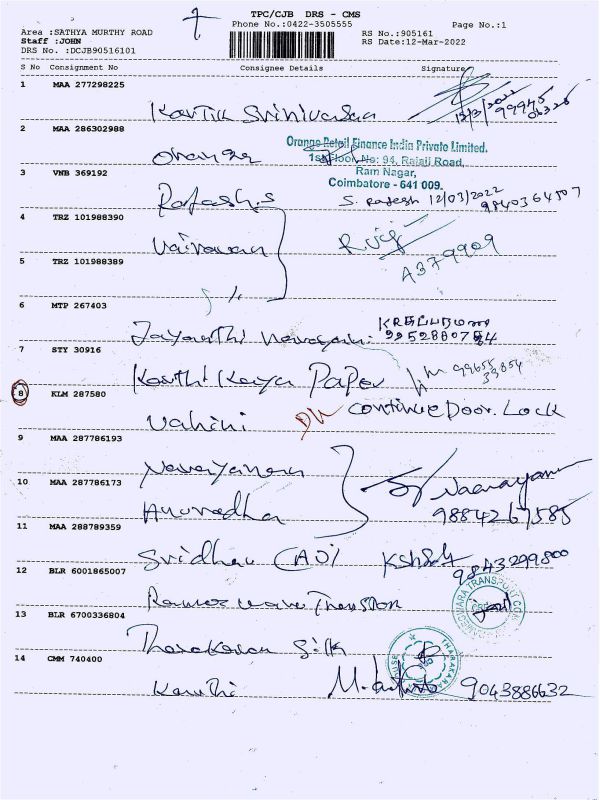 TPC/CJB DRS - CMS
Phone No.:0422-3505555
Page No.:1
Area :SATHYA MURTHY ROAD
Staff :JOHN
DRS No. :DCJB90516101
RS No.:905161
RS Date:12-Mar-2022
S No Consignment No Consignee Details Signature
1 MAA 277298225
Kartik Srinivasan
12/3/2022
99945
2 MAA 286302988
Orange
Orange Retail Finance India Private Limited.
1st Floor, No: 94, Rajaji Road,
Ram Nagar,
Coimbatore - 641 009.
3 VNB 369192
Rajash.s
S. Rajesh 12/03/2022
9840364507
4 TRZ 101988390
Vairavan
A379909
5 TRZ 101988389
6 MTP 267403
Jayanthi
9252880784
7 STY 30916
Karthikeya Paper
99655
8 KLM 287580
Vahini
DL Continue Door. Lock
9 MAA 287786193
Narayanan
10 MAA 287786173
Anuradha
Naarayanan
9884267585
11 MAA 288789359
Sridhar
9843299800
12 BLR 6001865007
13 BLR 6700336804
Tharakaran Silk
14 CMM 740400
Karuthi
9043886632